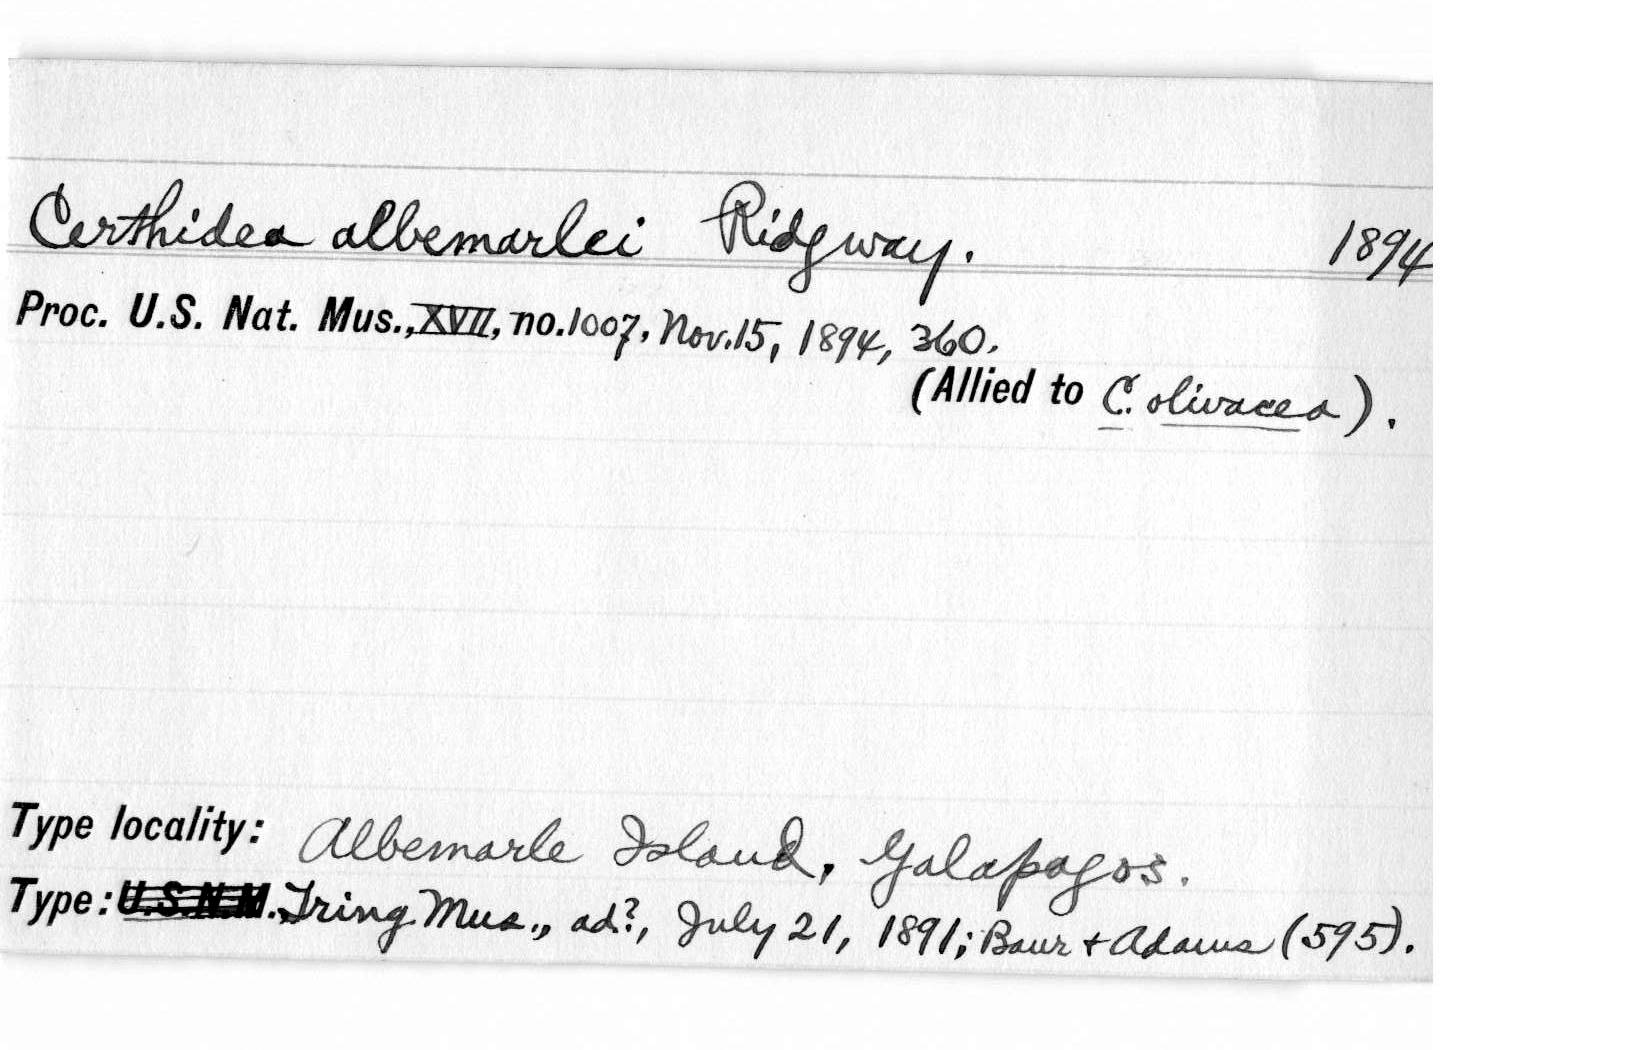 Certhidea albemarlei Ridgway. 1894
Proc. U.S. Nat. Mus., XVII, no. 1007, Nov. 15, 1894, 360.
(Allied to C. olivacea).
Type locality: Albemarle Island, Galapagos.
Type: U.S.N.M. Tring Mus., ad?, July 21, 1891; Baur + Adams (595).